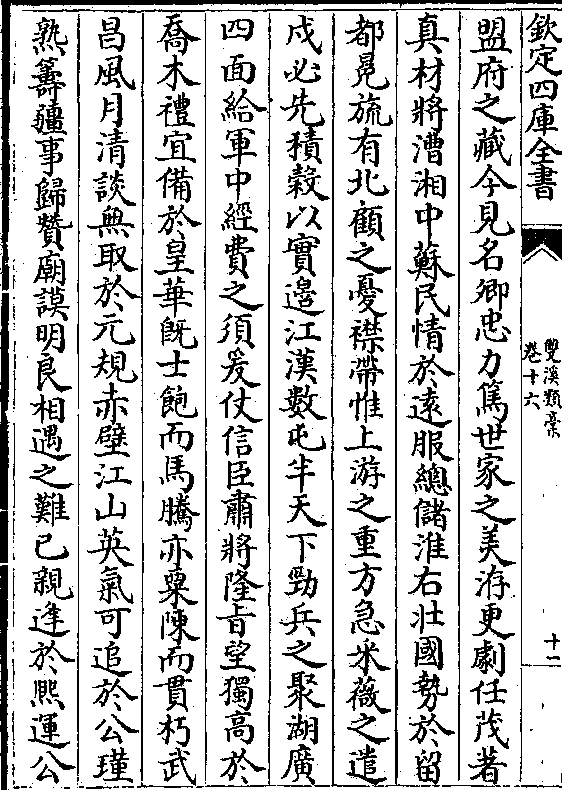 欽定四庫全書
雙溪類稾
卷十六
十一
盟府之藏今見名卿忠力篤世家之美洊更劇任茂著
真材將漕湘中蘇民情於遠服總儲淮右壯國勢於留
都冕旒有北顧之憂襟帶惟上游之重方急采薇之遣
戍必先積穀以實邊江漢數屯半天下勁兵之聚湖廣
四面給軍中經費之須爰仗信臣肅將隆旨望獨高於
喬木禮宜備於皇華既士飽而馬騰亦粟陳而貫朽武
昌風月清談無取於元規赤壁江山英氣可追於公瑾
熟籌疆事歸贊廟謨明良相遇之難已親逢於熈運公